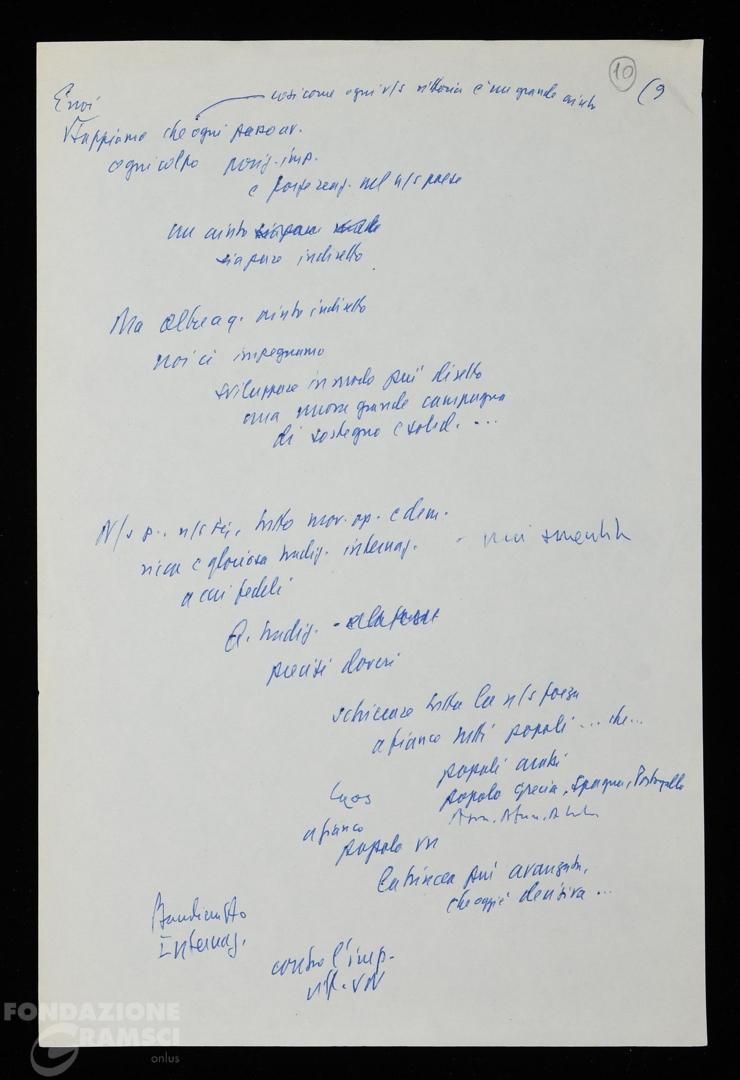 10
(9
E noi
così come ogni v/s vittoria è un grande aiuto
Sappiamo che ogni passo av.
ogni colpo posiz. imp.
e forze reaz. nel n/s paese
un aiuto sia pure
sia pure indiretto
Ma oltre a q. aiuto indiretto
noi ci impegnamo
sviluppare in modo più diretto
una nuova grande campagna
di sostegno e solid. ...
N/s p., n/s , tutto mov. op. e dem.
ricca e gloriosa tradiz. internaz. - mai smentita
a cui fedeli
Q. tradiz. -
precisi doveri
schierare tutta la n/s forza
a fianco tutti popoli ... che ...
popoli arabi
popolo Grecia, Spagna, Portogallo
Laos
a fianco
popolo VN
la trincea più avanzata,
che oggi è decisiva ...
Internaz.
contro l'imp.
FONDAZIONE
GRAMSCI
onlus